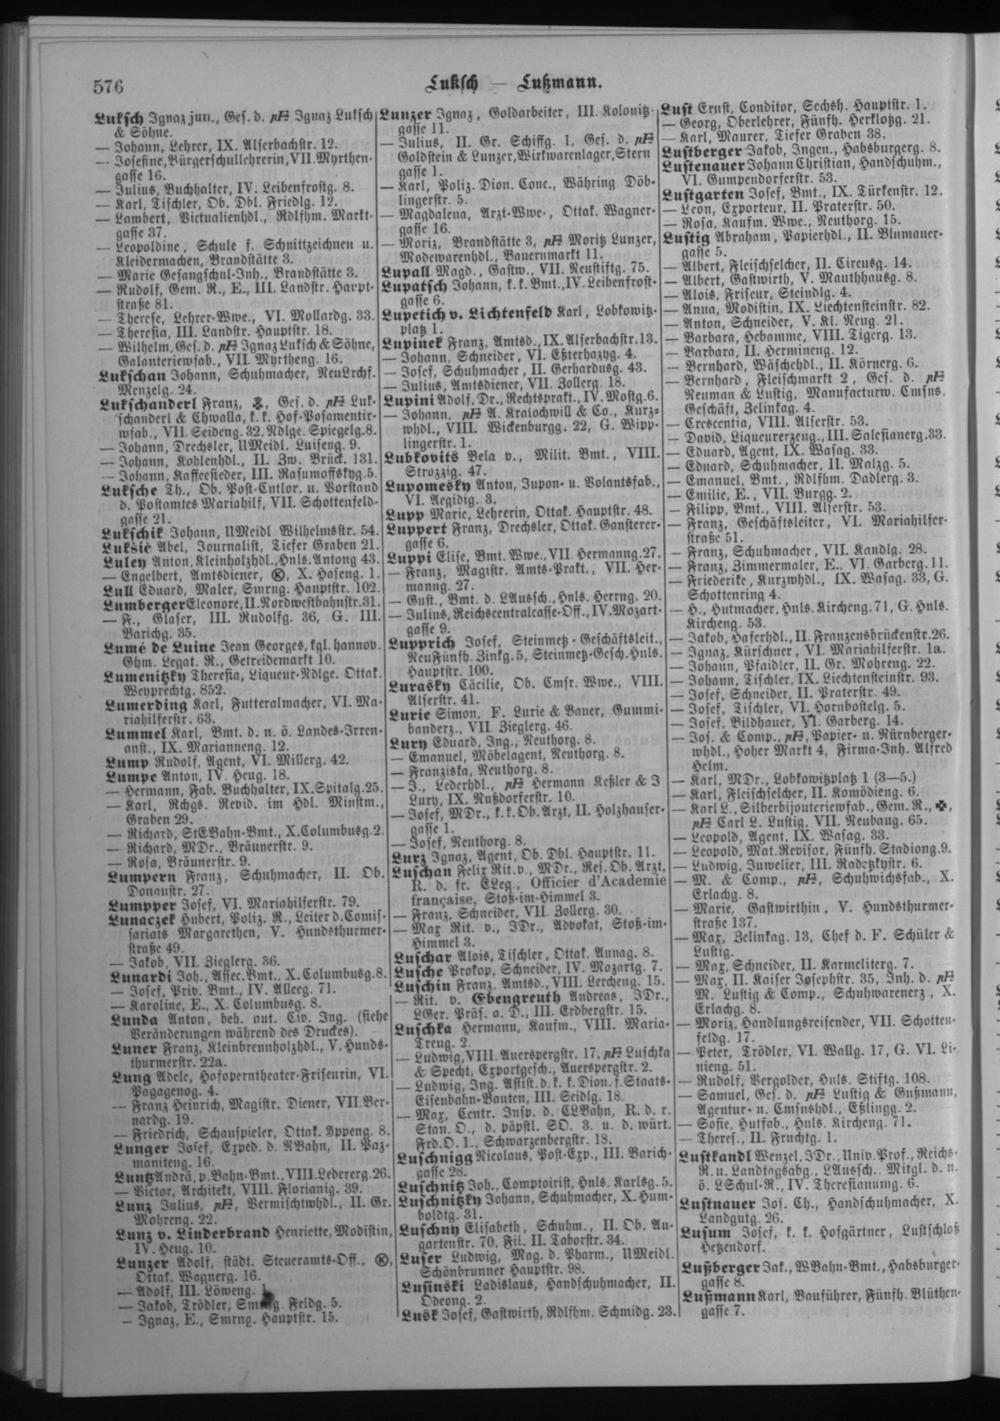 576
Luksch — Lußmann.
Luksch Ignaz jun., Ges. d. Ignaz Luksch
& Söhne.
— Johann, Lehrer, IX. Alserbachstr. 12.
— Josefine, Bürgerschullehrerin, VII. Myrthen-
gasse 16.
— Julius, Buchhalter, IV. Leibenfrostg. 8.
— Karl, Tischler, Ob. Dbl. Friedlg. 12.
— Lambert, Victualienhdl., Rdlfhm. Markt-
gasse 37.
— Leopoldine, Schule f. Schnittzeichnen u.
Kleidermachen, Brandstätte 3.
— Marie Gesangschul-Inh., Brandstätte 3.
— Rudolf, Gem. R., E., III. Landstr. Haupt-
straße 81.
— Therese, Lehrer-Wwe., VI. Mollardg. 33.
— Theresia, III. Landstr. Hauptstr. 18.
— Wilhelm, Ges. d. Ignaz Luksch & Söhne,
Galanteriewfab., VII. Myrtheng. 16.
Lukschan Johann, Schuhmacher, NeuLrchf.
Menzelg. 24.
Lukschanderl Franz, Ges. d. Luk-
schanderl & Chwalla, k. k. Hof-Posamentir-
wfab., VII. Seideng. 32, Ndlge. Spiegelg. 8.
— Johann, Drechsler, UMeidl. Luiseng. 9.
— Johann, Kohlenhdl., II. Zw. Brück. 131.
— Johann, Kaffeesieder, III. Rasumoffskyg. 5.
Luksche Th., Ob. Post-Cntlor. u. Vorstand
d. Postamtes Mariahilf, VII. Schottenfeld-
gasse 21.
Lukschik Johann, UMeidl Wilhelmsstr. 54.
Lukšić Abel, Journalist, Tiefer Graben 21.
Luley Anton, Kleinholzhdl., Hnls. Antong 43.
— Engelbert, Amtsdiener, Ⓚ, X. Haseng. 1.
Lull Eduard, Maler, Smrng. Hauptstr. 102.
Lumberger Eleonore, II. Nordwestbahnstr. 31.
— F., Glaser, III. Rudolfg. 36, G. III.
Barichg. 35.
Lumé de Luine Jean Georges, kgl. hannov.
Ghm. Legat. R., Getreidemarkt 10.
Lumenitzky Theresia, Liqueur-Ndlge. Ottak.
Weyprechtg. 852.
Lumerding Karl, Futteralmacher, VI. Ma-
riahilferstr. 63.
Lummel Karl, Bmt. d. n. ö. Landes-Irren-
anst., IX. Marianneng. 12.
Lump Rudolf, Agent, VI. Millerg. 42.
Lumpe Anton, IV. Heug. 18.
— Hermann, Fab. Buchhalter, IX. Spitalg. 25.
— Karl, Rchgs. Revid. im Hdl. Minstm.,
Graben 29.
— Richard, StEBahn-Bmt., X. Columbusg. 2.
— Richard, MDr., Bräunerstr. 9.
— Rosa, Bräunerstr. 9.
Lumpern Franz, Schuhmacher, II. Ob.
Donaustr. 27.
Lumpper Josef, VI. Mariahilferstr. 79.
Lunaczek Hubert, Poliz. R., Leiter d. Comis-
sariats Margarethen, V. Hundsthurmer-
straße 49.
— Jakob, VII. Zieglerg. 36.
Lunardi Joh., Assec. Bmt., X. Columbusg. 8.
— Josef, Priv. Bmt., IV. Alleeg. 71.
— Karoline, E., X. Columbusg. 8.
Lunda Anton, beh. aut. Civ. Ing. (siehe
Veränderungen während des Druckes).
Luner Franz, Kleinbrennholzhdl., V. Hunds-
thurmerstr. 22a.
Lung Adele, Hofoperntheater-Friseurin, VI.
Papageng. 4.
— Franz Heinrich, Magistr. Diener, VII. Ber-
nardg. 19.
— Friedrich, Schauspieler, Ottak. Yppeng. 8.
Lunger Josef, Exped. d. NBahn, II. Paz-
maniteng. 16.
Luntz Andrä, p. Bahn-Bmt., VIII. Ledererg. 26.
— Victor, Architekt, VIII. Florianig. 39.
Lunz Julius, Vermischtwhdl., II. Gr.
Mohreng. 22.
Lunz v. Linderbrand Henriette, Modistin,
IV. Heug. 10.
Lunzer Adolf, städt. Steueramts-Off., Ⓚ,
Ottak. Wagnerg. 16.
— Adolf, III. Löweng.
— Jakob, Trödler, Feldg. 5.
— Ignaz, E., Smrng. Hauptstr. 15.
Lunzer Ignaz, Goldarbeiter, III. Kolonitz-
gasse 11.
— Julius, II. Gr. Schiffg. 1, Ges. d.
Goldstein & Lunzer, Wirkwarenlager, Stern
gasse 1.
— Karl, Poliz. Dion. Conc., Währing Döb-
lingerstr. 5.
— Magdalena, Arzt-Wwe., Ottak. Wagner-
gasse 16.
— Moriz, Brandstätte 3, Moritz Lunzer,
Modewarenhdl., Bauernmarkt 11.
Lupall Magd., Gastw., VII. Neustiftg. 75.
Lupatsch Johann, k. k. Bmt., IV. Leibenfrost-
gasse 6.
Lupetich v. Lichtenfeld Karl, Lobkowitz-
platz 1.
Lupinek Franz, Amtsd., IX. Alserbachstr. 13.
— Johann, Schneider, VI. Eszterhazyg. 4.
— Josef, Schuhmacher, II. Gerhardusg. 43.
— Julius, Amtsdiener, VII. Zollerg. 18.
Lupini Adolf, Dr., Rechtsprakt., IV. Mostg. 6.
— Johann, A. Kralochwill & Co., Kurz-
whdl., VIII. Wickenburgg. 22, G. Wipp-
lingerstr. 1.
Lubkovits Bela v., Milit. Bmt., VIII.
Strozzig. 47.
Lupomesky Anton, Jupon- u. Volantsfab.,
VI. Aegidig. 3.
Lupp Marie, Lehrerin, Ottak. Hauptstr. 48.
Luppert Franz, Drechsler, Ottak. Gansterer-
gasse 6.
Luppi Elise, Bmt. Wwe., VII. Hermanng. 27.
— Franz, Magistr. Amts-Prakt., VII. Her-
manng. 27.
— Gust., Bmt. d. LAussch., Hnls. Herrng. 20.
— Julius, Reichscentralcasse-Off., IV. Mozart-
gasse 9.
Lupprich Josef, Steinmetz-Geschäftsleit.,
NeuFünfh. Zinkg. 5, Steinmetz-Gesch. Hnls.
Hauptstr. 100.
Lurasky Cäcilie, Ob. Cmsr. Wwe., VIII.
Alserstr. 41.
Lurie Simon, F. Lurie & Bauer, Gummi-
banderz., VII. Zieglerg. 46.
Lury Eduard, Ing., Neuthorg. 8.
— Emanuel, Möbelagent, Neuthorg. 8.
— Franziska, Neuthorg. 8.
— J., Lederhdl., Hermann Keßler & J
Lury, IX. Nußdorferstr. 10.
— Josef, MDr., k. k. Ob. Arzt, II. Holzhauser-
gasse 1.
— Josef, Neuthorg. 8.
Lurz Ignaz, Agent, Ob. Dbl. Hauptstr. 11.
Luschan Felix Rit. v., MDr., Res. Ob. Arzt,
R. d. fr. ELeg., Officier d'Academie
française, Stoß-im-Himmel 3.
— Franz, Schneider, VII. Zollerg. 30.
— Max Rit. v., JDr., Advokat, Stoß-im-
Himmel 3.
Luschar Alois, Tischler, Ottak. Annag. 8.
Lusche Prokop, Schneider, IV. Mozartg. 7.
Luschin Franz, Amtsd., VIII. Lercheng. 15.
— Rit. v. Ebengreuth Andreas, JDr.,
LGer. Präs. a. D., III. Erdbergstr. 15.
Luschka Hermann, Kaufm., VIII. Maria-
Treug. 2.
— Ludwig, VIII. Auerspergstr. 17, Luschka
& Specht, Exportgesch., Auerspergstr. 2.
— Ludwig, Ing. Assist. d. k. k. Dion. f. Staats-
Eisenbahn-Bauten, III. Seidlg. 18.
— Max, Centr. Insp. d. CLBahn, R. d. r.
Stan. O., d. päpstl. SO. 3. u. d. württ.
Frd. O. 1., Schwarzenbergstr. 18.
Luschnigg Nicolaus, Post-Exp., III. Barich-
gasse 28.
Luschnitz Joh., Comptoirist, Hnls. Karlsg. 5.
Luschnitzky Johann, Schuhmacher, X. Hum-
boldtg. 31.
Luschny Elisabeth, Schuhm., II. Ob. Au-
gartenstr. 70, Fil. II. Taborstr. 34.
Luser Ludwig, Mag. d. Pharm., UMeidl.
Schönbrunner Hauptstr. 98.
Lusinski Ladislaus, Handschuhmacher, II.
Odeong. 2.
Lusk Josef, Gastwirth, Rdlfhm. Schmidg. 23.
Lust Ernst, Conditor, Sechsh. Hauptstr. 1.
— Georg, Oberlehrer, Fünfh. Herklotzg. 21.
— Karl, Maurer, Tiefer Graben 38.
Lustberger Jakob, Ingen., Habsburgerg. 8.
Lustenauer Johann Christian, Handschuhm.,
VI. Gumpendorferstr. 53.
Lustgarten Josef, Bmt., IX. Türkenstr. 12.
— Leon, Exporteur, II. Praterstr. 50.
— Rosa, Kaufm. Wwe., Neuthorg. 15.
Lustig Abraham, Papierhdl., II. Blumauer-
gasse 5.
— Albert, Fleischselcher, II. Circusg. 14.
— Albert, Gastwirth, V. Manthhausg. 8.
— Alois, Friseur, Steindlg. 4.
— Anna, Modistin, IX. Liechtensteinstr. 82.
— Anton, Schneider, V. Kl. Neug. 21.
— Barbara, Hebamme, VIII. Tigerg. 13.
— Barbara, II. Hermineng. 12.
— Bernhard, Wäschehdl., II. Körnerg. 6.
— Bernhard, Fleischmarkt 2, Ges. d.
Neuman & Lustig, Manufacturw. Cmsns.
Geschäft, Zelinkag. 4.
— Crescentia, VIII. Alserstr. 53.
— David, Liqueurerzeug., III. Salesianerg. 33.
— Eduard, Agent, IX. Wasag. 33.
— Eduard, Schuhmacher, II. Malzg. 5.
— Emanuel, Bmt., Rdlfhm. Dadlerg. 3.
— Emilie, E., VII. Burgg. 2.
— Filipp, Bmt., VIII. Alserstr. 53.
— Franz, Geschäftsleiter, VI. Mariahilfer-
straße 51.
— Franz, Schuhmacher, VII. Kandlg. 28.
— Franz, Zimmermaler, E., VI. Garberg. 11.
— Friederike, Kurzwhdl., IX. Wasag. 33, G.
Schottenring 4.
— H., Hutmacher, Hnls. Kircheng. 71, G. Hnls.
Kircheng. 53.
— Jakob, Haferhdl., II. Franzensbrückenstr. 26.
— Ignaz, Kürschner, VI. Mariahilferstr. 1a.
— Johann, Pfaidler, II. Gr. Mohreng. 22.
— Johann, Tischler, IX. Liechtensteinstr. 93.
— Josef, Schneider, II. Praterstr. 49.
— Josef, Tischler, VI. Hornbostelg. 5.
— Josef, Bildhauer, VI. Garberg. 14.
— Jos. & Comp., Papier- u. Nürnberger-
whdl., Hoher Markt 4, Firma-Inh. Alfred
Helm.
— Karl, MDr., Lobkowitzplatz 1 (3—5.)
— Karl, Fleischselcher, II. Komödieng. 6.
— Karl L., Silberbijouteriewfab., Gem. R.,
Carl L. Lustig, VII. Neubaug. 65.
— Leopold, Agent, IX. Wasag. 33.
— Leopold, Mat. Revisor, Fünfh. Stadiong. 9.
— Ludwig, Juwelier, III. Radetzkystr. 6.
— M. & Comp., Schuhwichsfab., X.
Erlachg. 8.
— Marie, Gastwirthin, V. Hundsthurmer-
straße 137.
— Max, Zelinkag. 13, Chef d. F. Schüler &
Lustig.
— Max, Schneider, II. Karmeliterg. 7.
— Max, II. Kaiser Josephstr. 35, Inh. d.
M. Lustig & Comp., Schuhwarenerz, X.
Erlachg. 8.
— Moriz, Handlungsreisender, VII. Schotten-
feldg. 17.
— Peter, Trödler, VI. Wallg. 17, G. VI. Li-
nieng. 51.
— Rudolf, Vergolder, Hnls. Stiftg. 108.
— Samuel, Ges. d. Lustig & Gußmann,
Agentur- u. Cmsnshdl., Eßlingg. 2.
— Sofie, Hutfab., Hnls. Kircheng. 71.
— Theres., II. Fruchtg. 1.
Lustkandl Wenzel, JDr., Univ. Prof., Reichs-
R. u. Landtagsabg., LAussch., Mitgl. d. n.
ö. LSchul-R., IV. Theresianumg. 6.
Lustnauer Jos. Ch., Handschuhmacher, X.
Landgutg. 26.
Lusum Josef, k. k. Hofgärtner, Lustschloß
Hetzendorf.
Lußberger Jak., WBahn-Bmt., Habsburger-
gasse 8.
Lußmann Karl, Bauführer, Fünfh. Blüthen-
gasse 7.